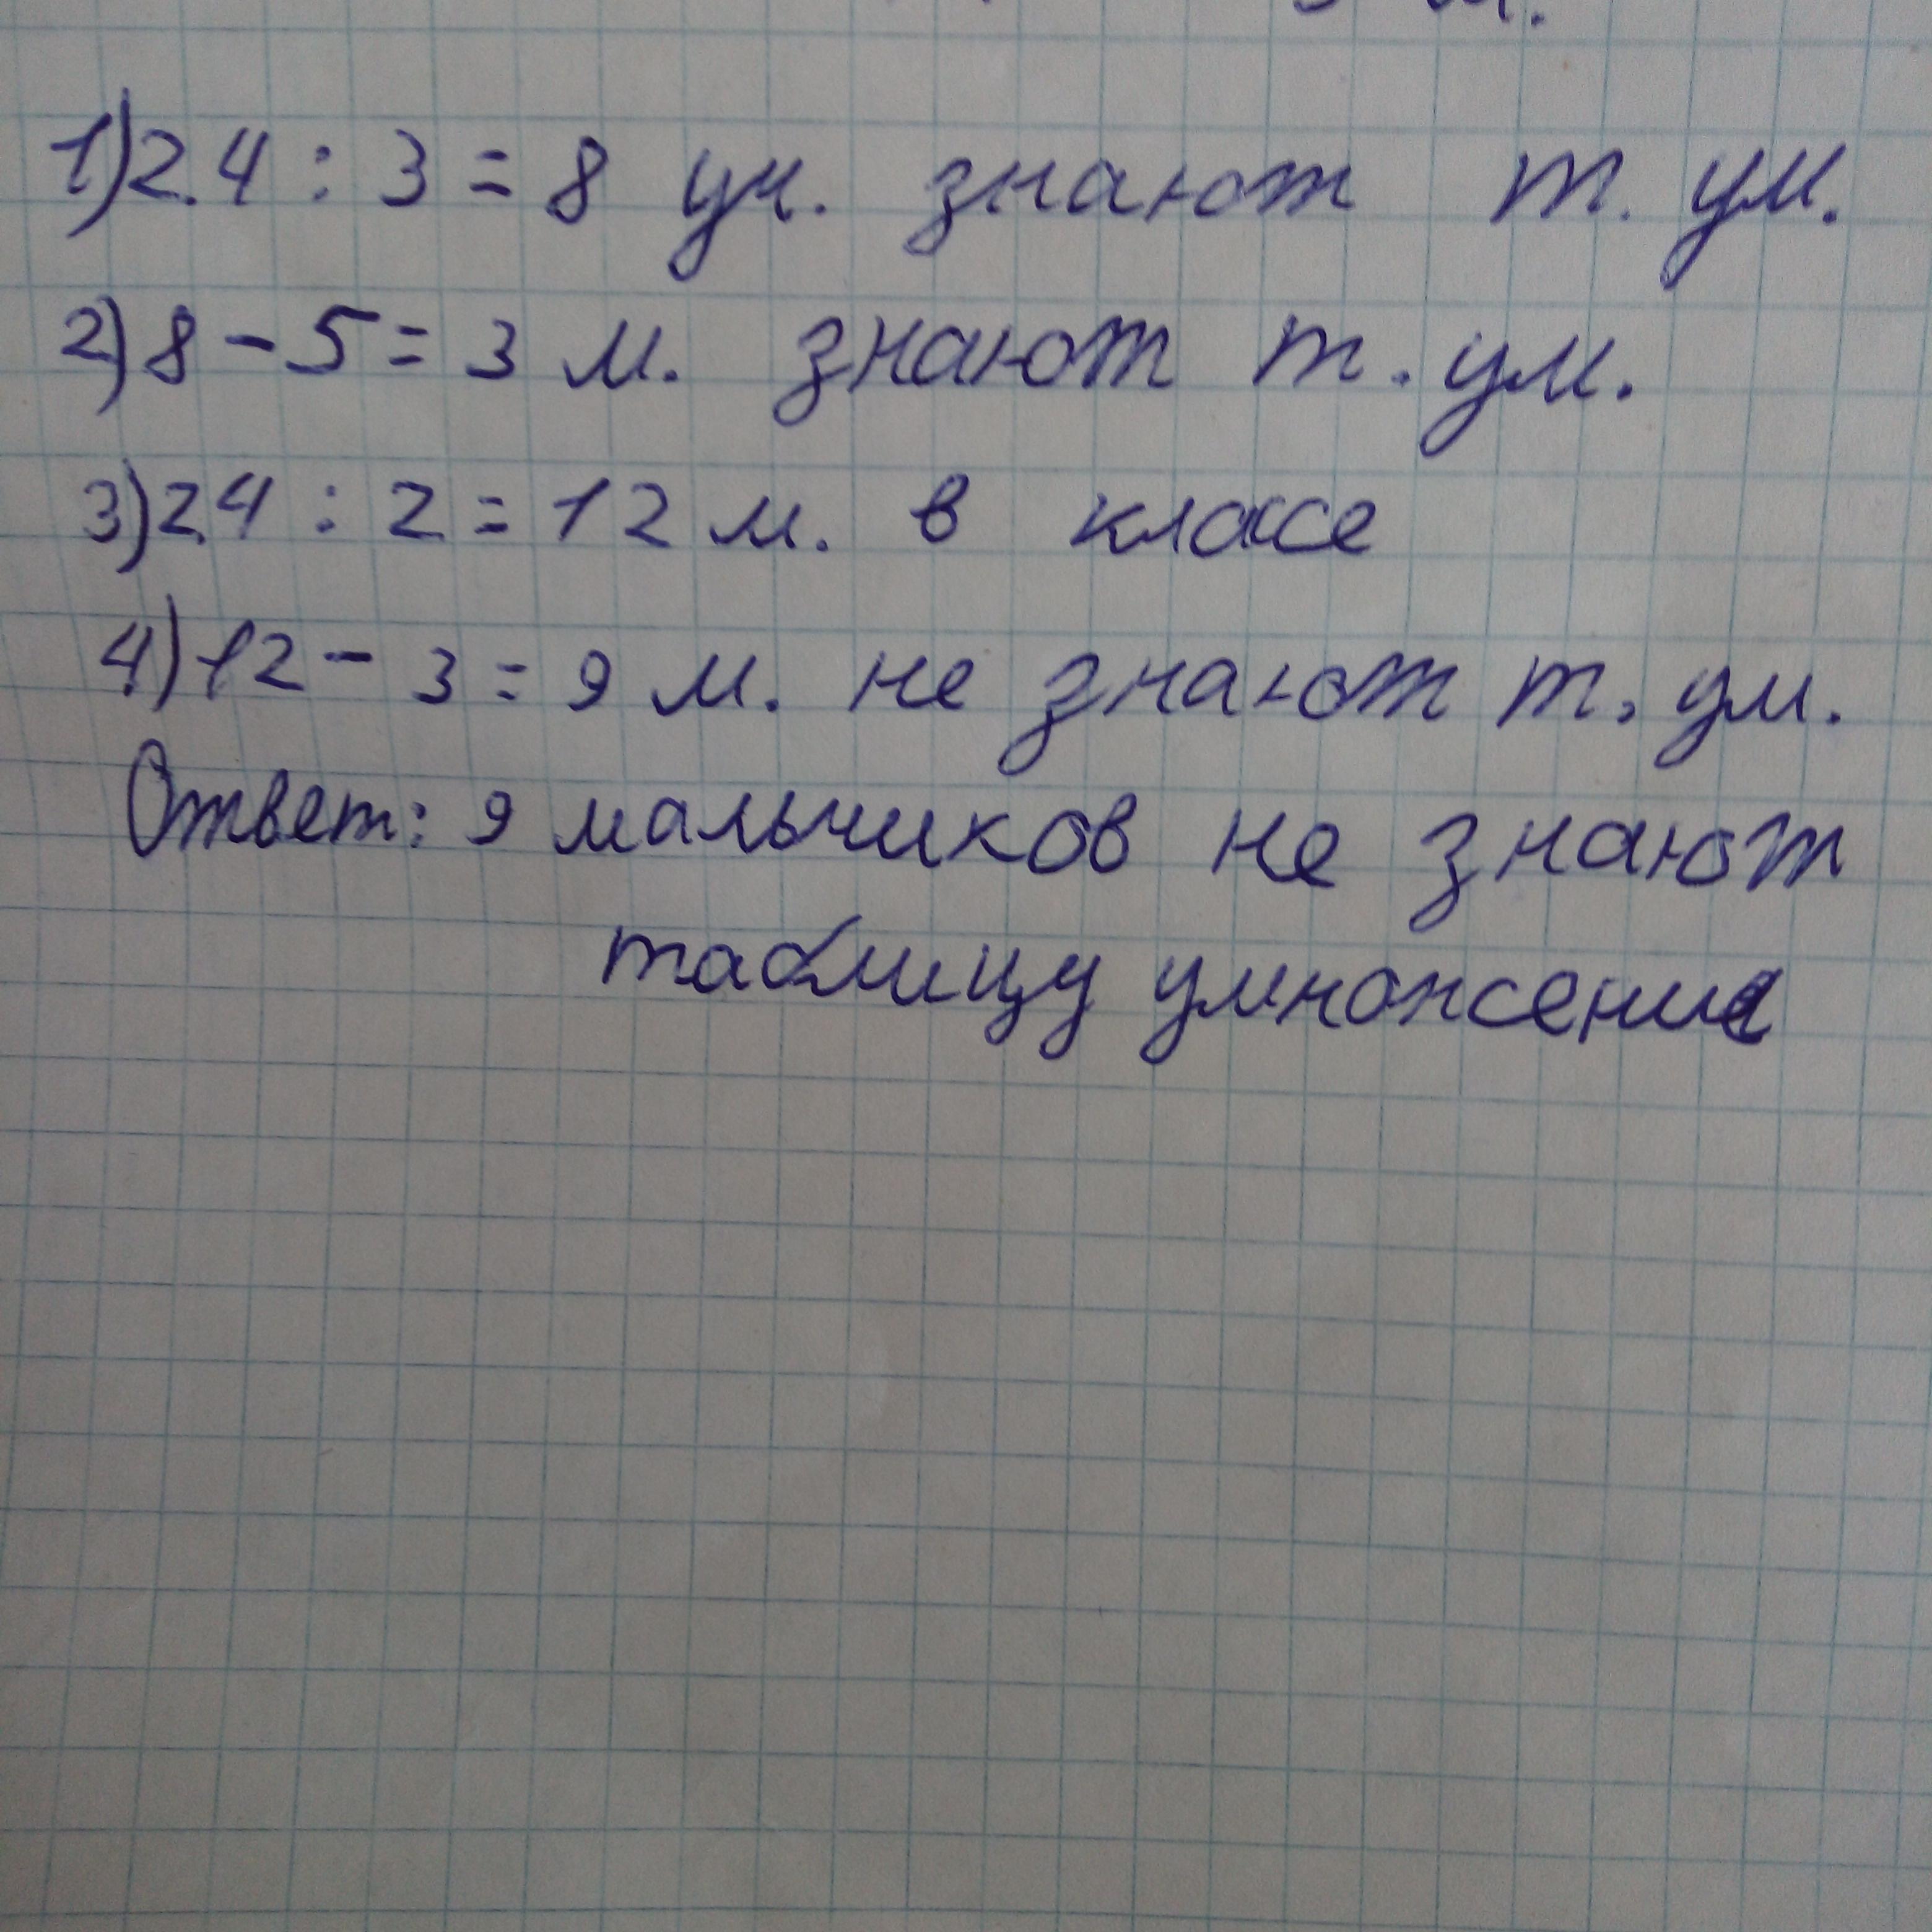 1) 24 : 3 = 8 уч. знают т. ум.
2) 8 - 5 = 3 м. знают т. ум.
3) 24 : 2 = 12 м. в классе
4) 12 - 3 = 9 м. не знают т. ум.
Ответ: 9 мальчиков не знают
таблицу умножения